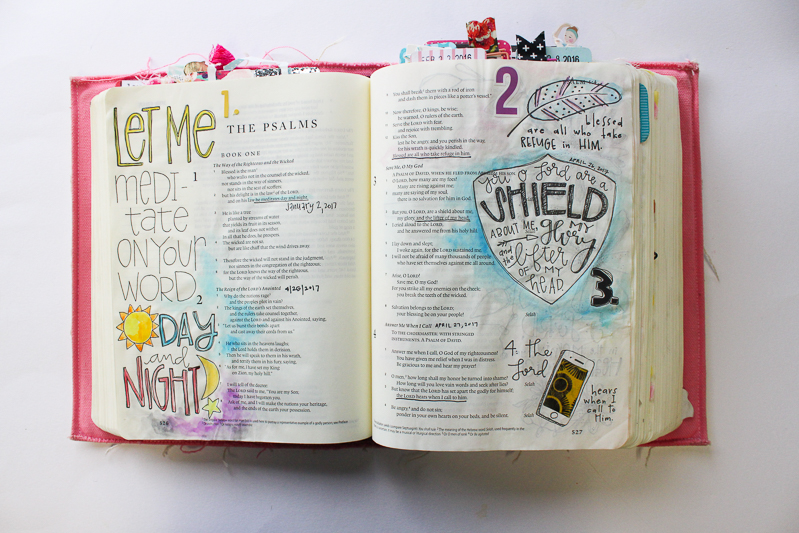 LET ME
MEDI-
TATE
ON YOUR
WORD
DAY
and
NIGHT
1.
THE PSALMS
BOOK ONE
The Way of the Righteous and the Wicked
1
Blessed is the man
who walks not in the counsel of the wicked,
nor stands in the way of sinners,
nor sits in the seat of scoffers;
but his delight is in the law of the LORD,
and on his law he meditates day and night.
January 2, 2017
He is like a tree
planted by streams of water
that yields its fruit in its season,
and its leaf does not wither.
In all that he does, he prospers.
The wicked are not so,
but are like chaff that the wind drives away.
Therefore the wicked will not stand in the judgment,
nor sinners in the congregation of the righteous;
for the LORD knows the way of the righteous,
but the way of the wicked will perish.
The Reign of the LORD's Anointed
4/20/2017
2
Why do the nations rage
and the peoples plot in vain?
The kings of the earth set themselves,
and the rulers take counsel together,
against the LORD and against his Anointed, saying,
"Let us burst their bonds apart
and cast away their cords from us."
He who sits in the heavens laughs;
the Lord holds them in derision.
Then he will speak to them in his wrath,
and terrify them in his fury, saying,
"As for me, I have set my King
on Zion, my holy hill."
I will tell of the decree:
The LORD said to me, "You are my Son;
today I have begotten you.
Ask of me, and I will make the nations your heritage,
and the ends of the earth your possession.
526
2016
8 2016
You shall break them with a rod of iron
and dash them in pieces like a potter's vessel."
Now therefore, O kings, be wise;
be warned, O rulers of the earth.
Serve the LORD with fear,
and rejoice with trembling.
Kiss the Son,
lest he be angry, and you perish in the way,
for his wrath is quickly kindled.
Blessed are all who take refuge in him.
2
blessed
are all who take
REFUGE in HIM.
Save Me, O My God
3
A PSALM OF DAVID, WHEN HE FLED FROM ABSALOM HIS SON.
O LORD, how many are my foes!
Many are rising against me;
many are saying of my soul,
there is no salvation for him in God.
But you, O LORD, are a shield about me,
my glory, and the lifter of my head.
I cried aloud to the LORD,
and he answered me from his holy hill.
I lay down and slept;
I woke again, for the LORD sustained me.
I will not be afraid of many thousands of people
who have set themselves against me all around.
Arise, O LORD!
Save me, O my God!
For you strike all my enemies on the cheek;
you break the teeth of the wicked.
Salvation belongs to the LORD;
your blessing be on your people!
Selah
you O Lord are a
SHIELD
ABOUT ME, MY
glory
and the lifter
OF MY
HEAD
3.
Answer Me When I Call
APRIL 27, 2017
4
TO THE CHOIRMASTER: WITH STRINGED
INSTRUMENTS. A PSALM OF DAVID.
Answer me when I call, O God of my righteousness!
You have given me relief when I was in distress.
Be gracious to me and hear my prayer!
O men, how long shall my honor be turned into shame?
How long will you love vain words and seek after lies?
Selah
But know that the LORD has set apart the godly for himself;
the LORD hears when I call to him.
Be angry, and do not sin;
ponder in your own hearts on your beds, and be silent.
Selah
4: the
Lord
hears
when I
call to
Him.
527